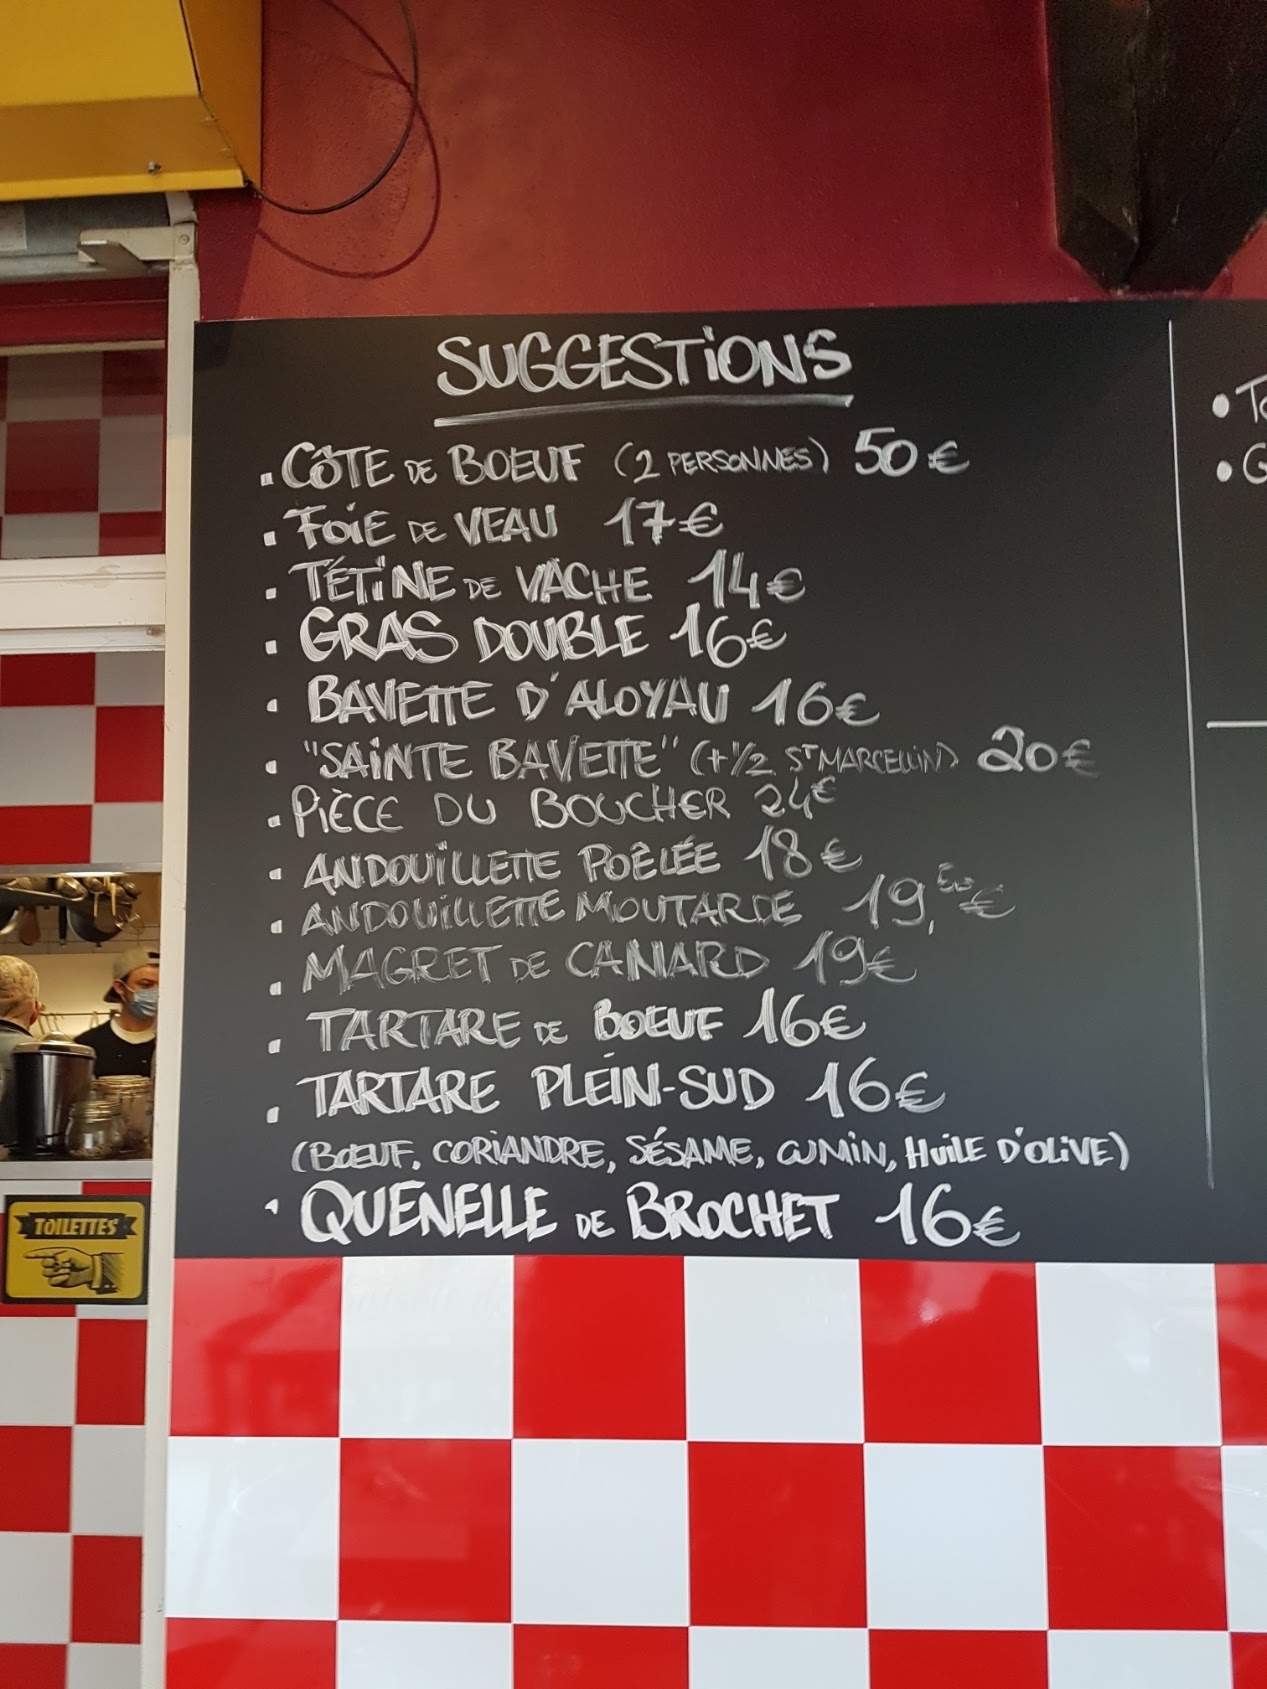 SUGGESTIONS
• CÔTE DE BOEUF (2 PERSONNES) 50€
• FOIE DE VEAU 17€
• TÉTINE DE VACHE 14€
• GRAS DOUBLE 16€
• BAVETTE D'ALOYAU 16€
• "SAINTE BAVETTE" (+ 1/2 ST MARCELLIN) 20€
• PIÈCE DU BOUCHER 24€
• ANDOUILLETTE POÊLÉE 18€
• ANDOUILLETTE MOUTARDE 19,50€
• MAGRET DE CANARD 19€
• TARTARE DE BOEUF 16€
• TARTARE PLEIN-SUD 16€
(BOEUF, CORIANDRE, SÉSAME, CUMIN, HUILE D'OLIVE)
• QUENELLE DE BROCHET 16€
TOILETTES